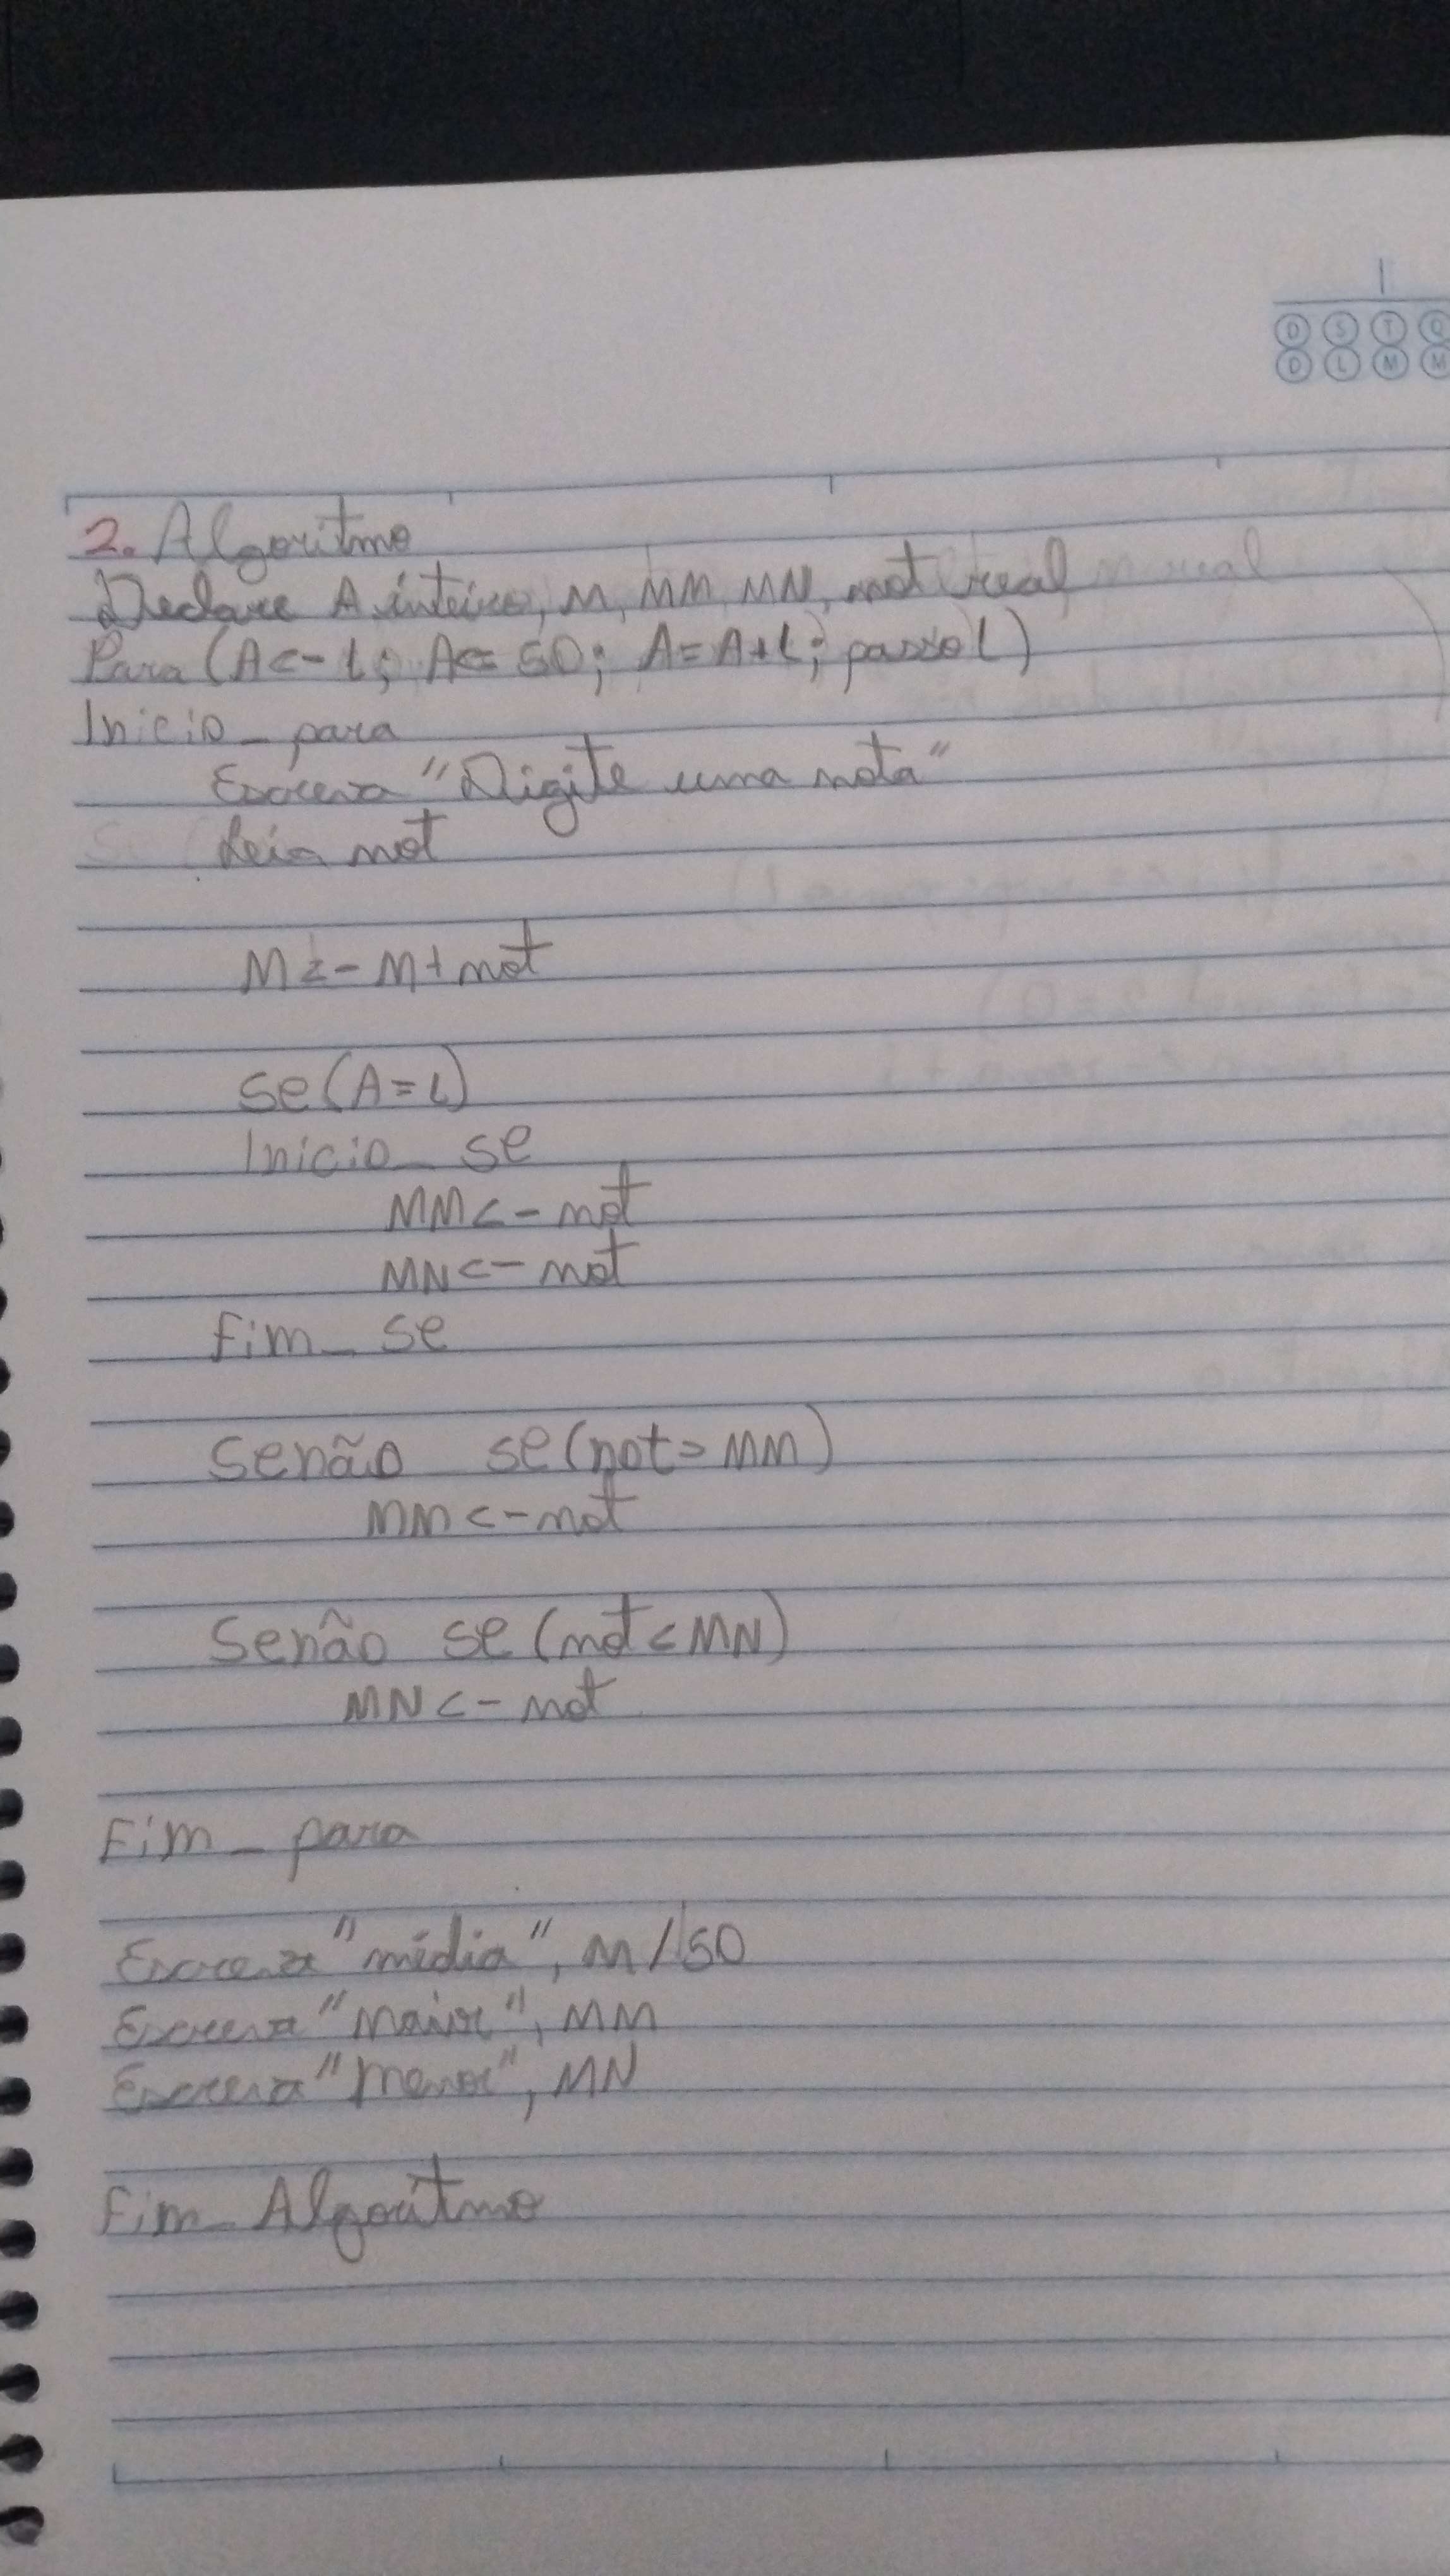 D S T Q
D L M M
2. Algoritmo
Declare A inteiro, M, MM, MN, not real
Para (A<-1; A<=50; A=A+1; passo 1)
Inicio_para
Escreva "Digite uma nota"
Leia not
M<-M+not
Se(A=1)
Inicio_se
MM<-not
MN<-not
Fim_se
Senão se(not>MM)
MM<-not
Senão se(not<MN)
MN<-not
Fim_para
Escreva "média", M/50
Escreva "Maior", MM
Escreva "Menor", MN
Fim_Algoritmo